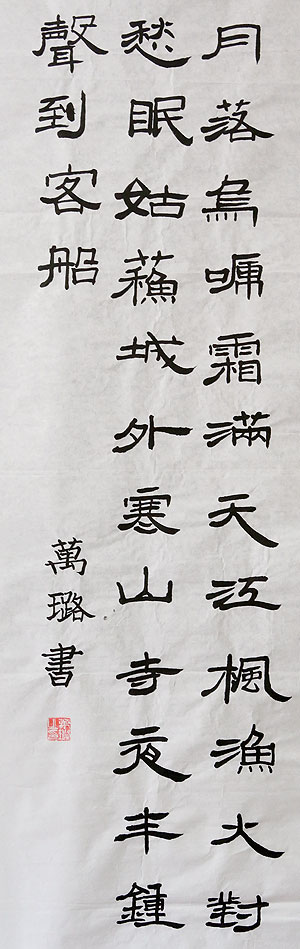 月落烏啼霜滿天江楓漁火對
愁眠姑蘇城外寒山寺夜半鍾
聲到客船
萬璐書